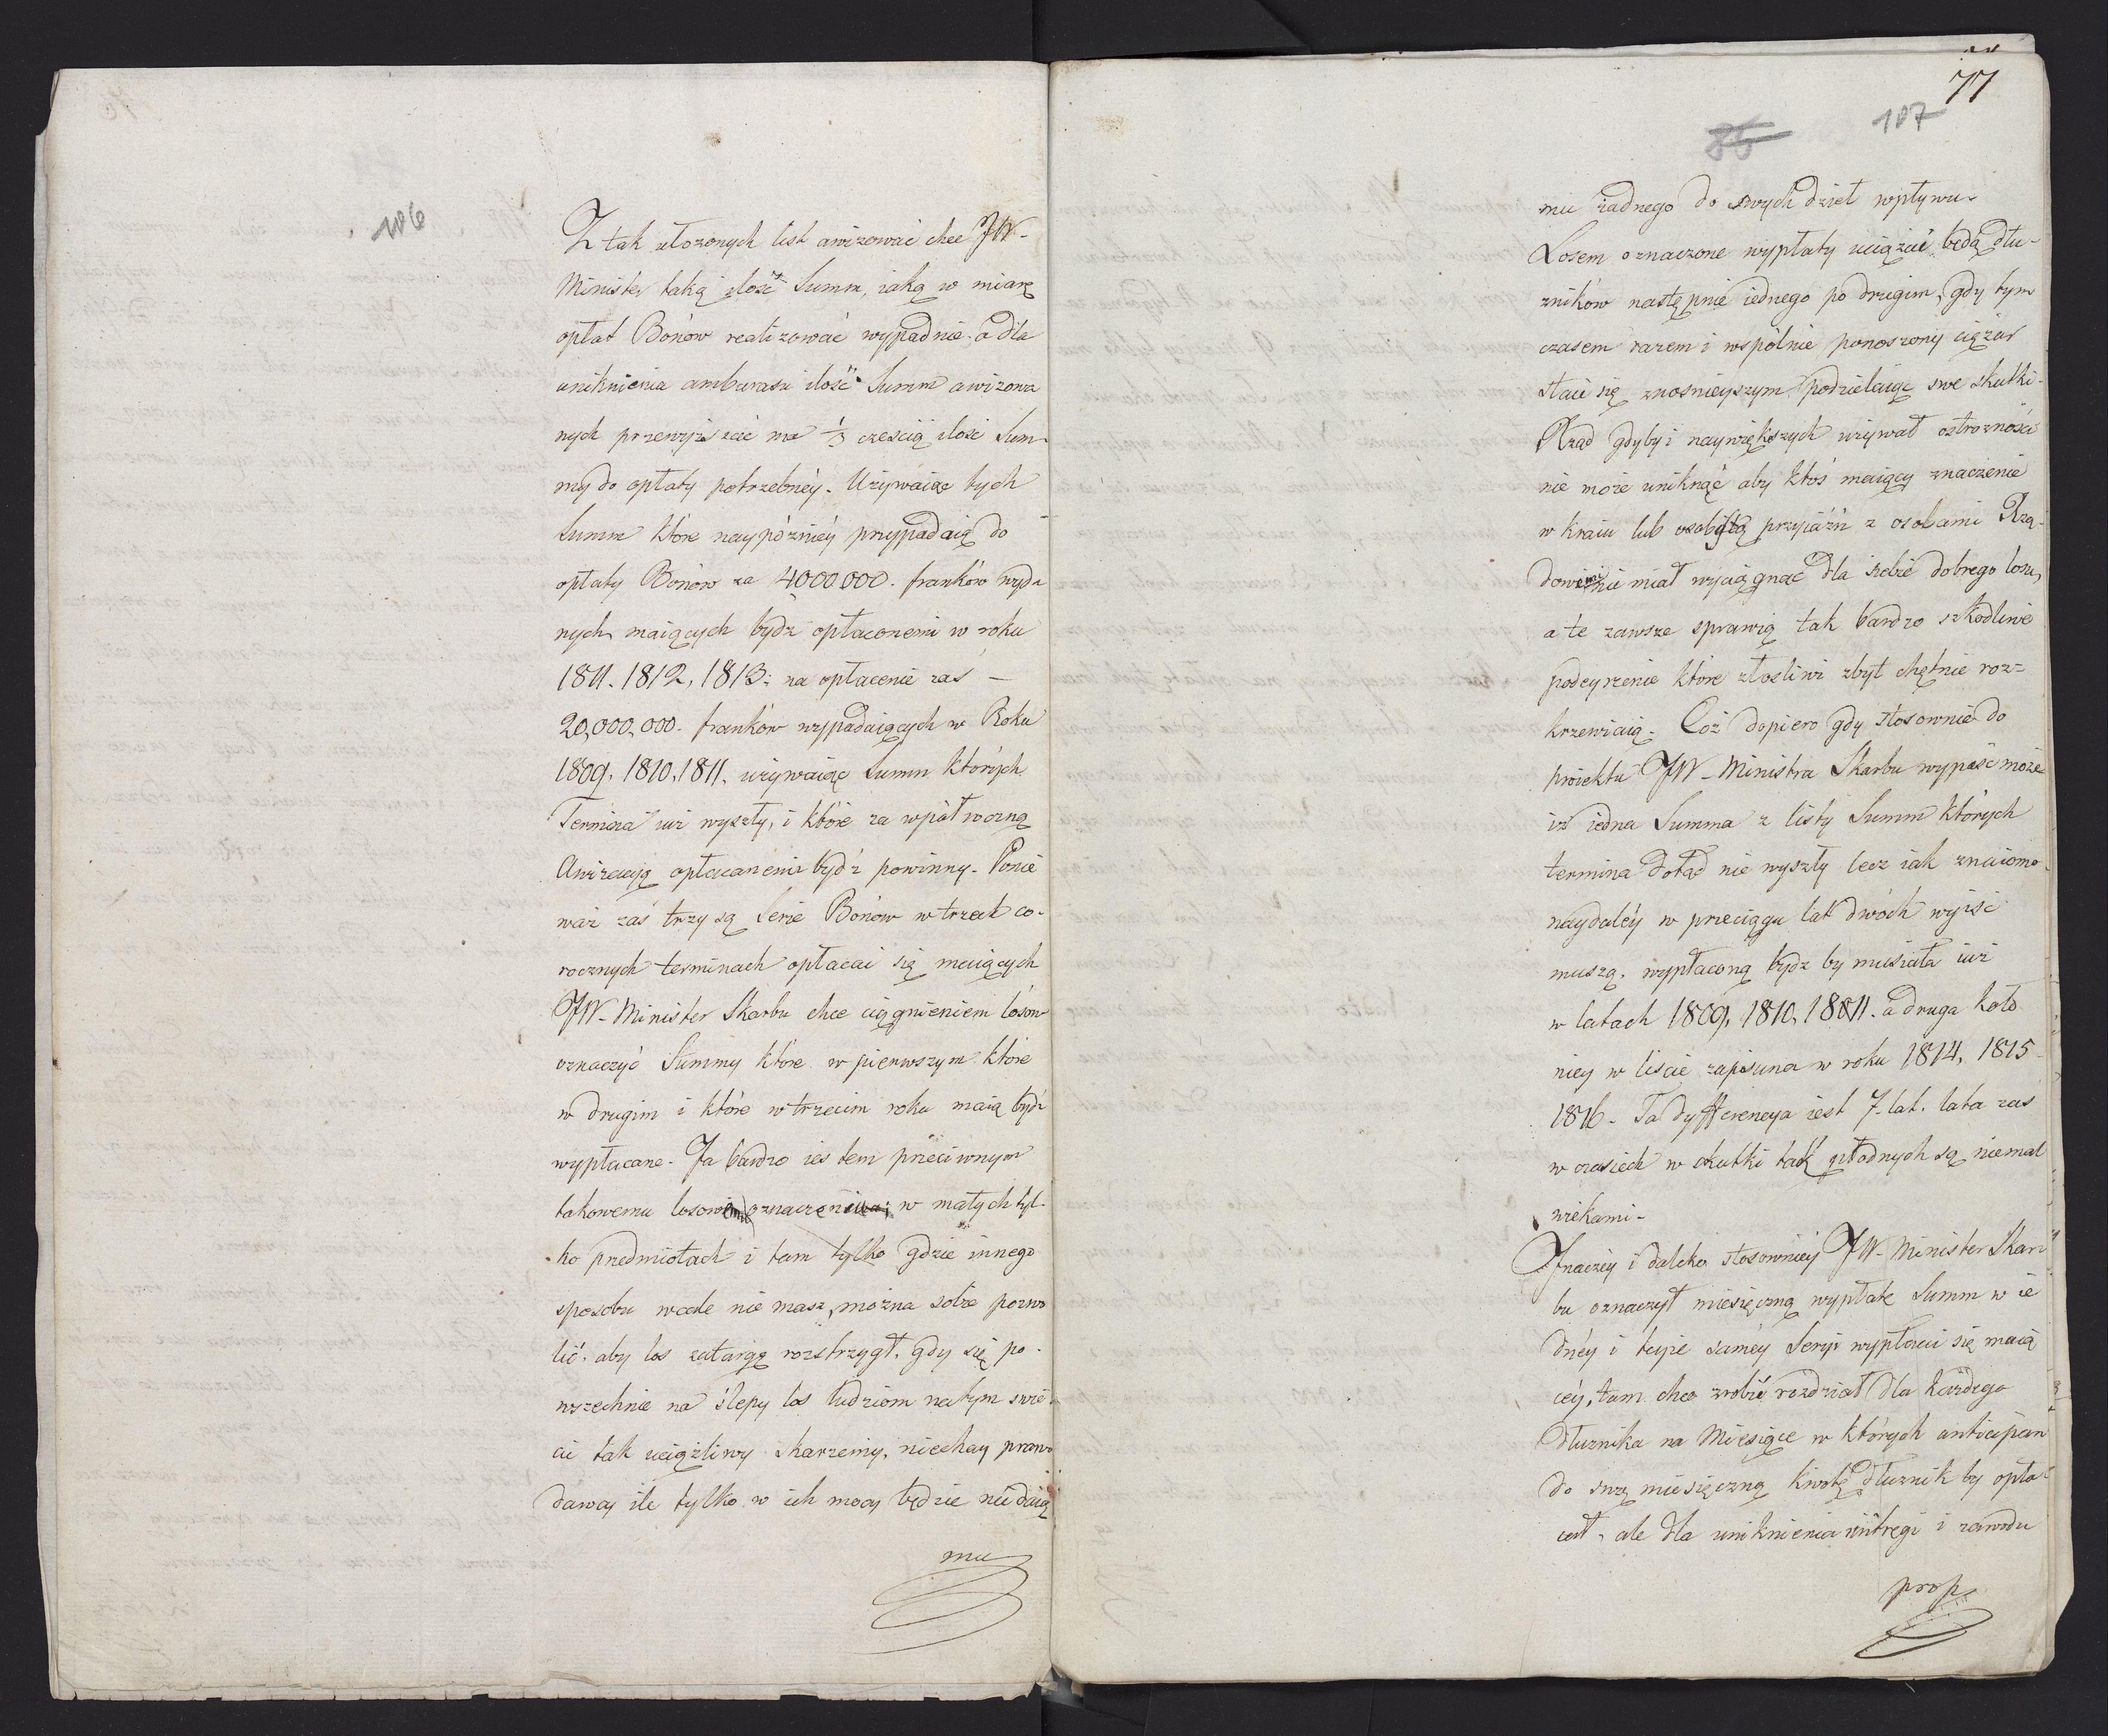 106
Z tak ułozonych list awizować chce JW-
Minister taką ilość Summ, iaką w miarę
opłat Bonów realizować wypadnie. a dla
uniknienia ambarasu ilość Summ awizowa
nych przewyższać ma 1/3 cześcią ilość Sum-
my do opłaty potrzebnéy. Używaiąc tych
Summ które naypóźniéy przypadaią do
opłaty Bonów za 4000000. franków wyda
nych maiących bydz opłaconemi w roku
1811. 1812, 1813: na opłacenie zaś —
20,000,000. franków wypadaiących w Roku
1809, 1810, 1811, używaiąc Summ których
Termina iuż wyszły, i które za wpół roczną
Awizacyą opłacanemi bydź powinny. Ponie
waż zaś trzy są Serie Bonów w trzech co-
rocznych terminach opłacać się maiących
JW- Minister Skarbu chce ciągnieniem losow
oznaczyć Summy które w pierwszym które
w drugim i które w trzecim roku maią bydź
wypłacane. Ja bardzo iestem przeciwnym
takowemu losowemu oznaczeniu; w małych tyl-
ko przedmiotach i tam tylko gdzie innego
sposobu wcale nie masz, można sobie pozwo
lić. aby los zatargę rozstrzygł. gdy się po-
wszechnie na ślepy los ludziom na tym swie
cie tak uciążliwy skarzemy, niechay prawo
dawcy ile tylko w ich mocy będzie nie daią
mu
77
107
86
mu żadnego do swych dzieł wpływu.
Losem oznaczone wypłaty uciążać będą dłu-
zników następnie iednego po drugim, gdy tym
czasem razem i wspólnie ponoszony ciężar
staie się znosnieyszym podzielaiąc swe skutki.
Rząd gdyby i naywiększych używał ostrozności
nie może uniknąć aby ktoś maiący znaczenie
w kraiu lub osobistą przyiaźń z osobami Rzą-
dowemi nie miał wyciągnąć dla siebie dobrego losu,
a te zawsze sprawią tak bardzo szkodliwe
podeyrzenie które złosliwi zbyt chętnie roz=
krzewiaią. Coż dopiero gdy stosownie do
proiektu JW- Ministra Skarbu wypaść może
iż iedna Summa z listy Summ których
termina dotąd nie wyszły lecz iak znaiomo
naydaléy w przeciągu lat dwóch wyiść
muszą. wypłaconą bydz by musiała iuż
w latach 1809, 1810, 1811. a druga koło
niey w liscie zapisana w roku 1814, 1815
1816. Ta dyfferencya iest 7. lat. lata zas
w czasiech w skutki tak płodnych są niemal
wiekami-
Jnaczey i daleko stosowniey JW- Minister Skar
bu oznaczył miesięczną wypłatę Summ w ie
dnéy i teyże saméy Seryi wypłacać się maią
céy, tam chce zrobić rozdział dla każdego
dłuznika na Miesiące w których anticipan
do swą miesięczną kwotę dłuznik by opła-
cał, ale dla uniknienia intregi i zawodu
prop